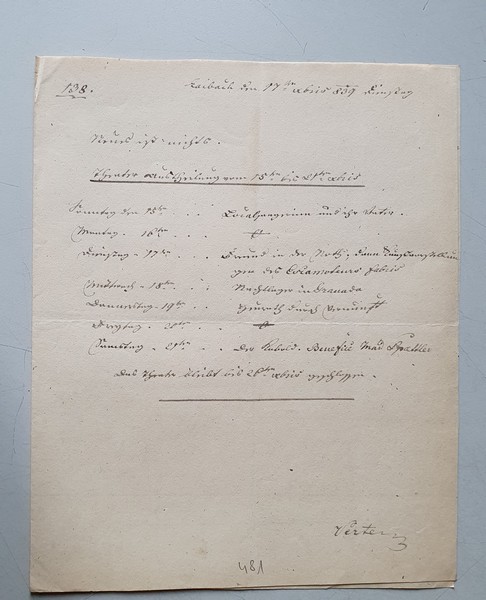 138.
Laibach den 17ten Xbris 839 Dienstag
Neues ist nichts.
Theater Austheilung vom 15ten bis 21ten Xbris
Sonntag den 15ten . . . Localsängerinn und ihr Vater.
Montag - 16ten . . .
Dienstag - 17ten . . . Freund in der Noth, dann
des Fabris
Mittwoch - 18ten . . . Nachtlager in Granada
Donnerstag - 19ten . . . Heurath durch Vernunft
Freytag - 20ten . . .
Samstag - 21ten . . . Der Kobold. Benefice Mad
Das Theater bleibt bis 26ten Xbris geschlossen.
481